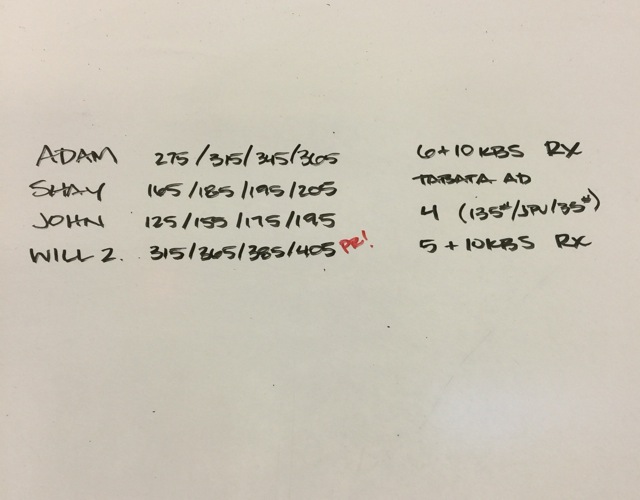 ADAM 275/315/345/365 6+10 KBS RX
SHAY 165/185/195/205 TABATA AD
JOHN 125/155/175/195 4 (135#/JPU/35#)
WILL Z. 315/365/385/405 PR! 5+10KBS RX